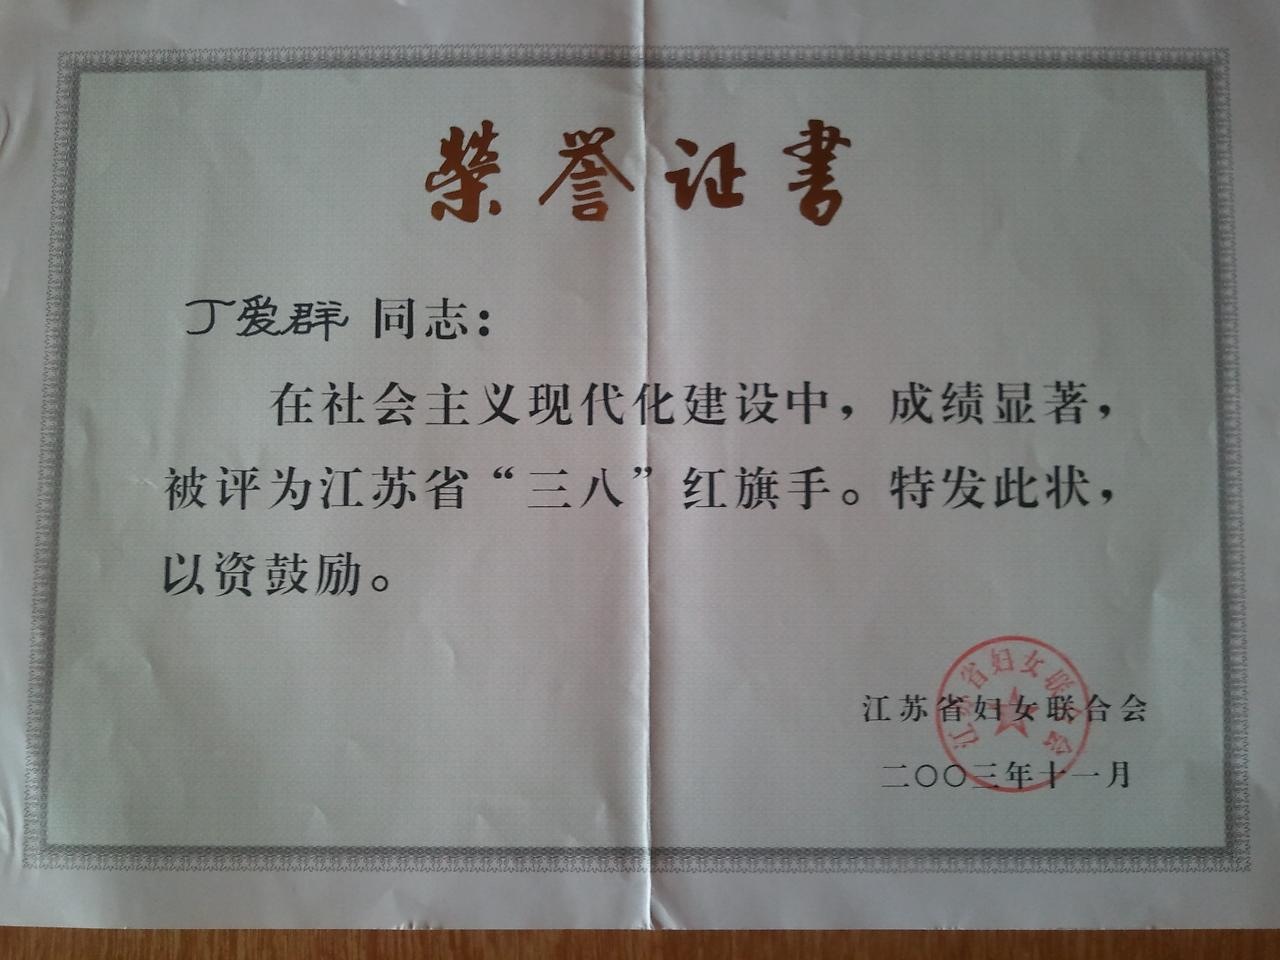 榮誉证書
丁爱群 同志：
在社会主义现代化建设中，成绩显著，
被评为江苏省“三八”红旗手。特发此状，
以资鼓励。
江苏省妇女联合会
二〇〇三年十一月
江苏省妇女联合会